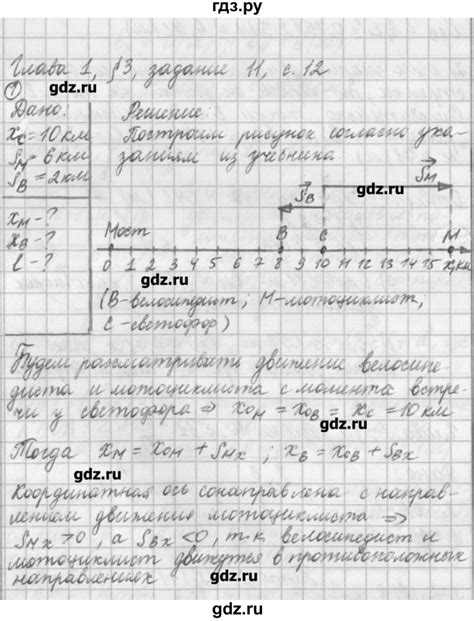 гдз.ру
Глава 1, §3, задание 11, с. 12
gdz.ru
① Дано:
x_C = 10 км
S_M = 6 км
S_B = 2 км
x_M - ?
x_B - ?
l - ?
Решение:
gdz.ru
Построим рисунок согласно ука-
заниям из учебника
S_M
S_B
gdz.ru
Мост
В С М
0 1 2 3 4 5 6 7 8 9 10 11 12 13 14 15 x, км
gdz.ru
(В-велосипедист; М-мотоциклист,
С-светофор)
gdz.ru
Будем рассматривать движение велосипе-
диста и мотоциклиста с момента встре-
чи у светофора ⇒ x_OM = x_OB = x_C = 10 км
gdz.ru
Тогда x_M = x_OM + S_Mx ; x_B = x_OB + S_Bx
gdz.ru
Координатная ось сонаправлена с направ-
лением движения мотоциклиста ⇒
gdz.ru
S_Mx > 0, а S_Bx < 0, т.к. велосипедист и
мотоциклист движутся в противоположных
направлениях
gdz.ru